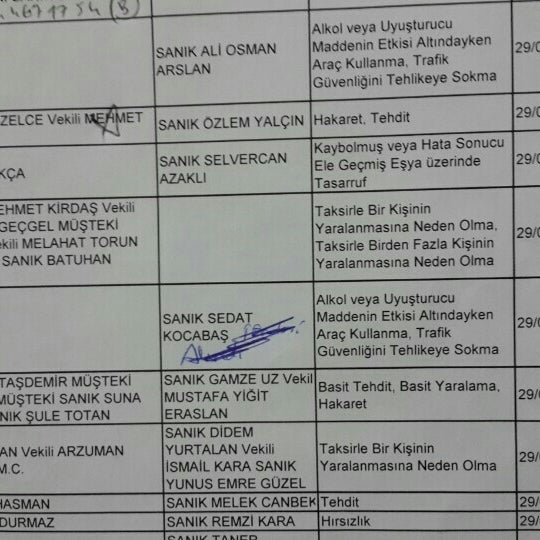 4671754 (B)
SANIK ALİ OSMAN
ARSLAN
Alkol veya Uyuşturucu
Maddenin Etkisi Altındayken
Araç Kullanma, Trafik
Güvenliğini Tehlikeye Sokma
29/0
ZELCE Vekili MEHMET
SANIK ÖZLEM YALÇIN
Hakaret, Tehdit
29/0
KÇA
SANIK SELVERCAN
AZAKLI
Kaybolmuş veya Hata Sonucu
Ele Geçmiş Eşya üzerinde
Tasarruf
29/0
EHMET KİRDAŞ Vekili
GEÇGEL MÜŞTEKİ
ekili MELAHAT TORUN
SANIK BATUHAN
Taksirle Bir Kişinin
Yaralanmasına Neden Olma,
Taksirle Birden Fazla Kişinin
Yaralanmasına Neden Olma
29/0
SANIK SEDAT
KOCABAŞ
Alkol veya Uyuşturucu
Maddenin Etkisi Altındayken
Araç Kullanma, Trafik
Güvenliğini Tehlikeye Sokma
29/0
TAŞDEMİR MÜŞTEKİ
MÜŞTEKİ SANIK SUNA
NIK ŞULE TOTAN
SANIK GAMZE UZ Vekil
MUSTAFA YİĞİT
ERASLAN
Basit Tehdit, Basit Yaralama,
Hakaret
29/0
AN Vekili ARZUMAN
M.C.
SANIK DİDEM
YURTALAN Vekili
İSMAİL KARA SANIK
YUNUS EMRE GÜZEL
Taksirle Bir Kişinin
Yaralanmasına Neden Olma
29/0
HASMAN
SANIK MELEK CANBEK
Tehdit
29/
DURMAZ
SANIK REMZİ KARA
Hırsızlık
29/
SANIK TANER